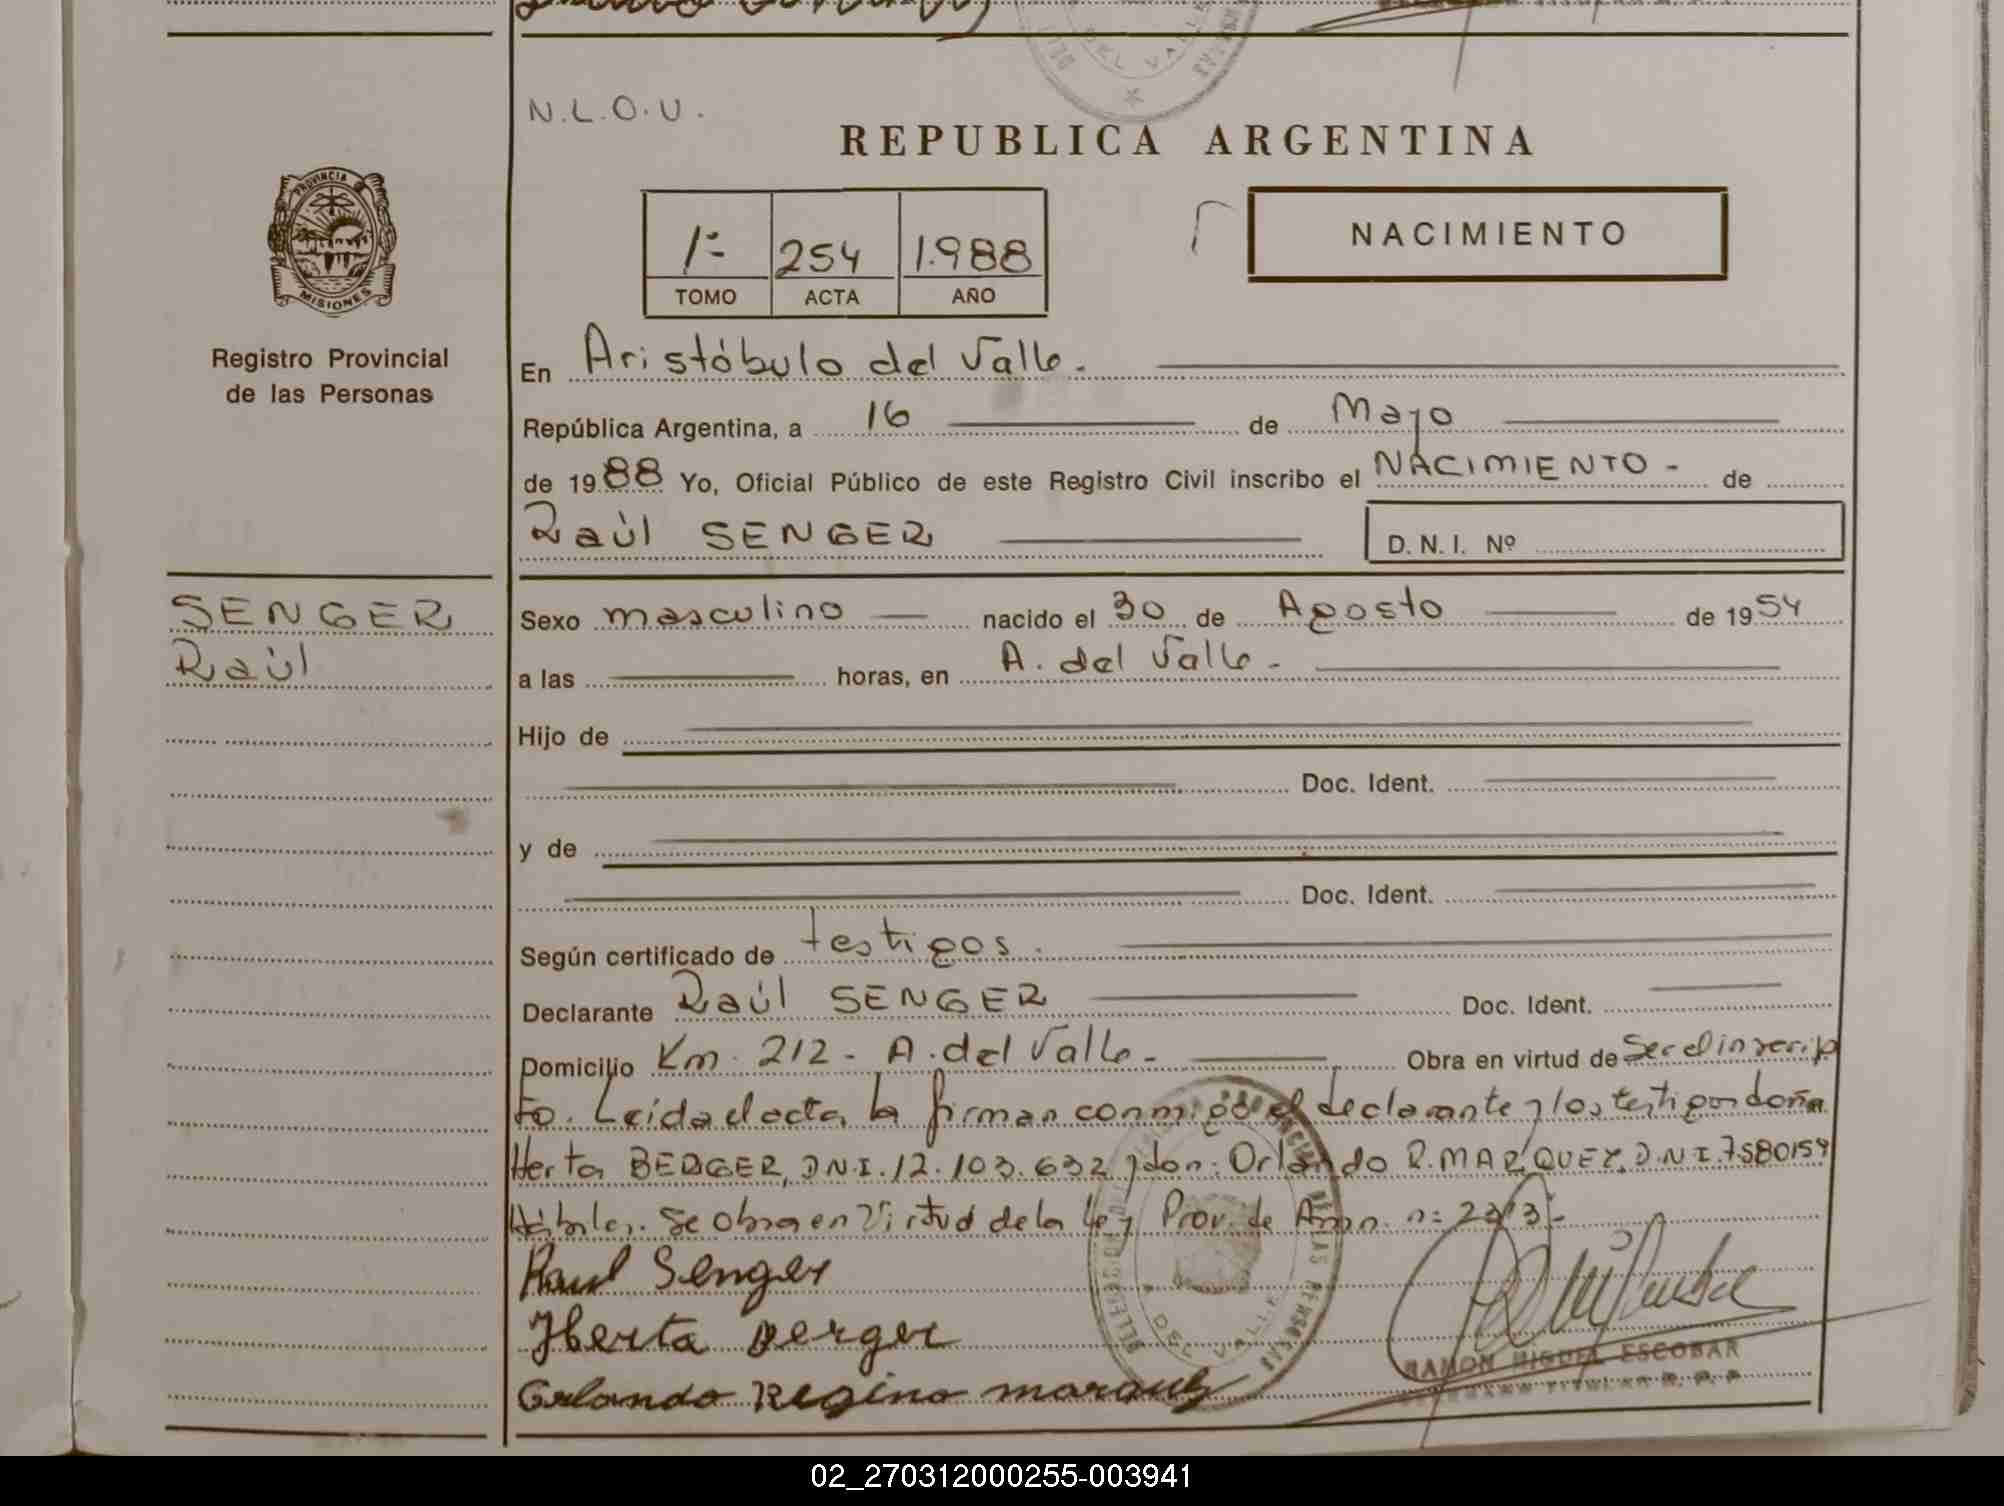 DEL VALLE
N.L.O.U.
REPUBLICA ARGENTINA
PROVINCIA DE
MISIONES
Registro Provincial
de las Personas
1º 254 1.988
TOMO ACTA AÑO
NACIMIENTO
En Aristóbulo del Valle.
República Argentina, a 16 de Mayo
de 1988 Yo, Oficial Público de este Registro Civil inscribo el NACIMIENTO - de
Raúl SENGER
D. N. I. Nº
SENGER
Raúl
Sexo masculino nacido el 30 de Agosto de 1954
a las horas, en A. del Valle -
Hijo de
Doc. Ident.
y de
Doc. Ident.
Según certificado de testigos.
Declarante Raúl SENGER Doc. Ident.
Domicilio Km. 212 - A. del Valle - Obra en virtud de Ser el inscrip
to. Leída el acta, la firman conmigo el declarante y los testigos doña
Herta BERGER, D.N.I. 12.103.632 y don: Orlando R. MARQUEZ, D.N.I. 7580154
Hábiles. Se obra en Virtud de la Ley Prov. de Amn. nº 2313-
Raul Senger
Herta Berger
Orlando Regino marquez
DEL VALLE
RAMON MIGUEL ESCOBAR
02_270312000255-003941